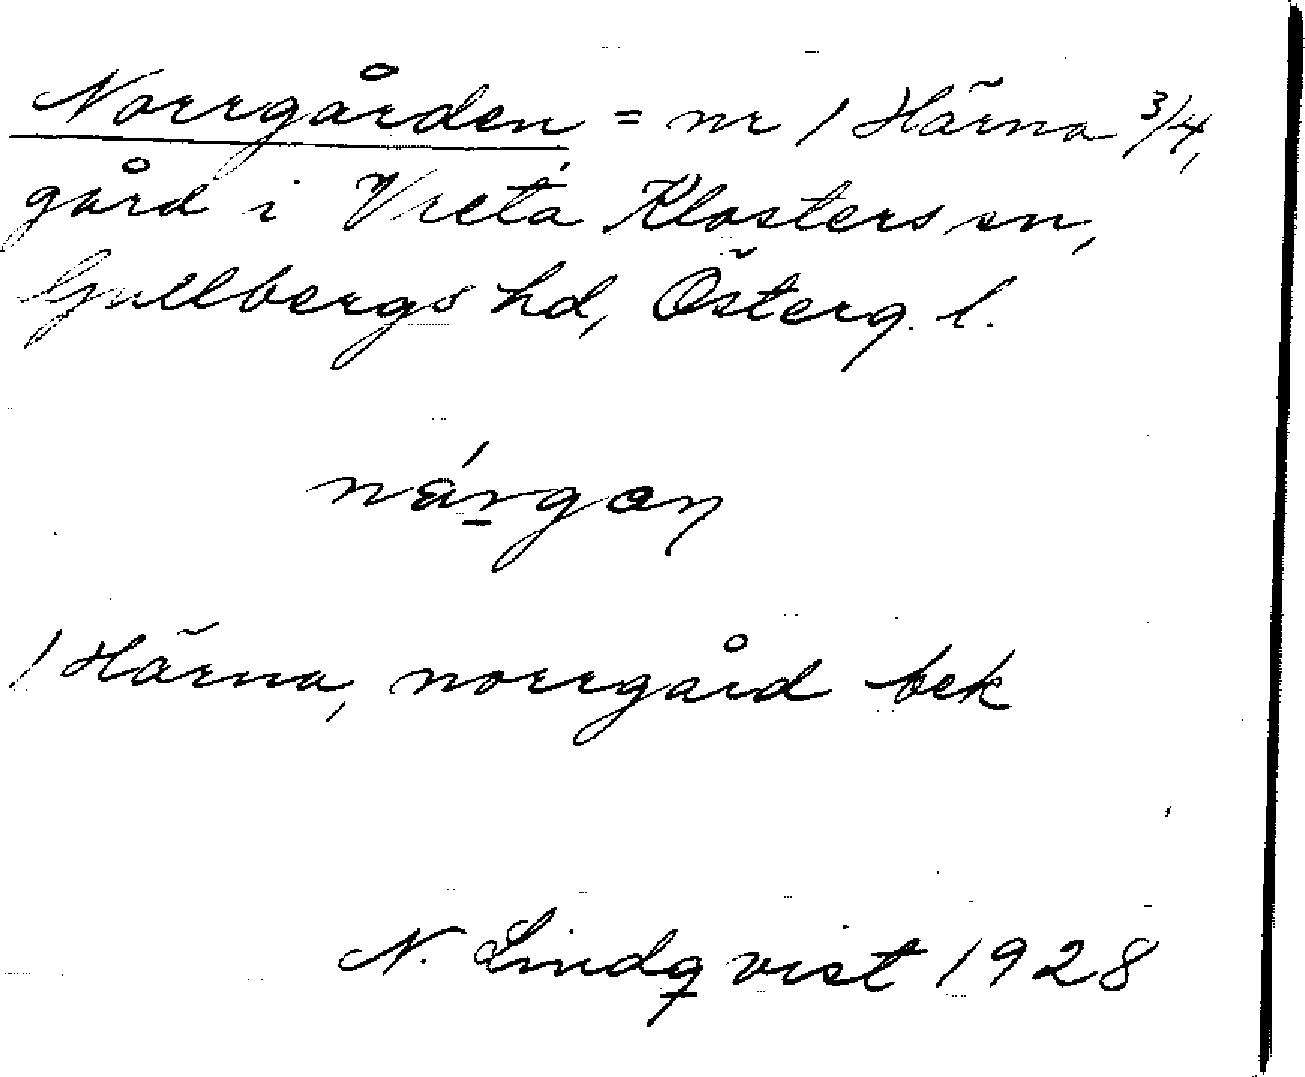 Norrgården = nr 1 Härna 3/4,
gård i Vreta Klosters sn,
Gullbergs hd, Österg. l.
1 Härna, norrgård bek
N. Lindqvist 1928